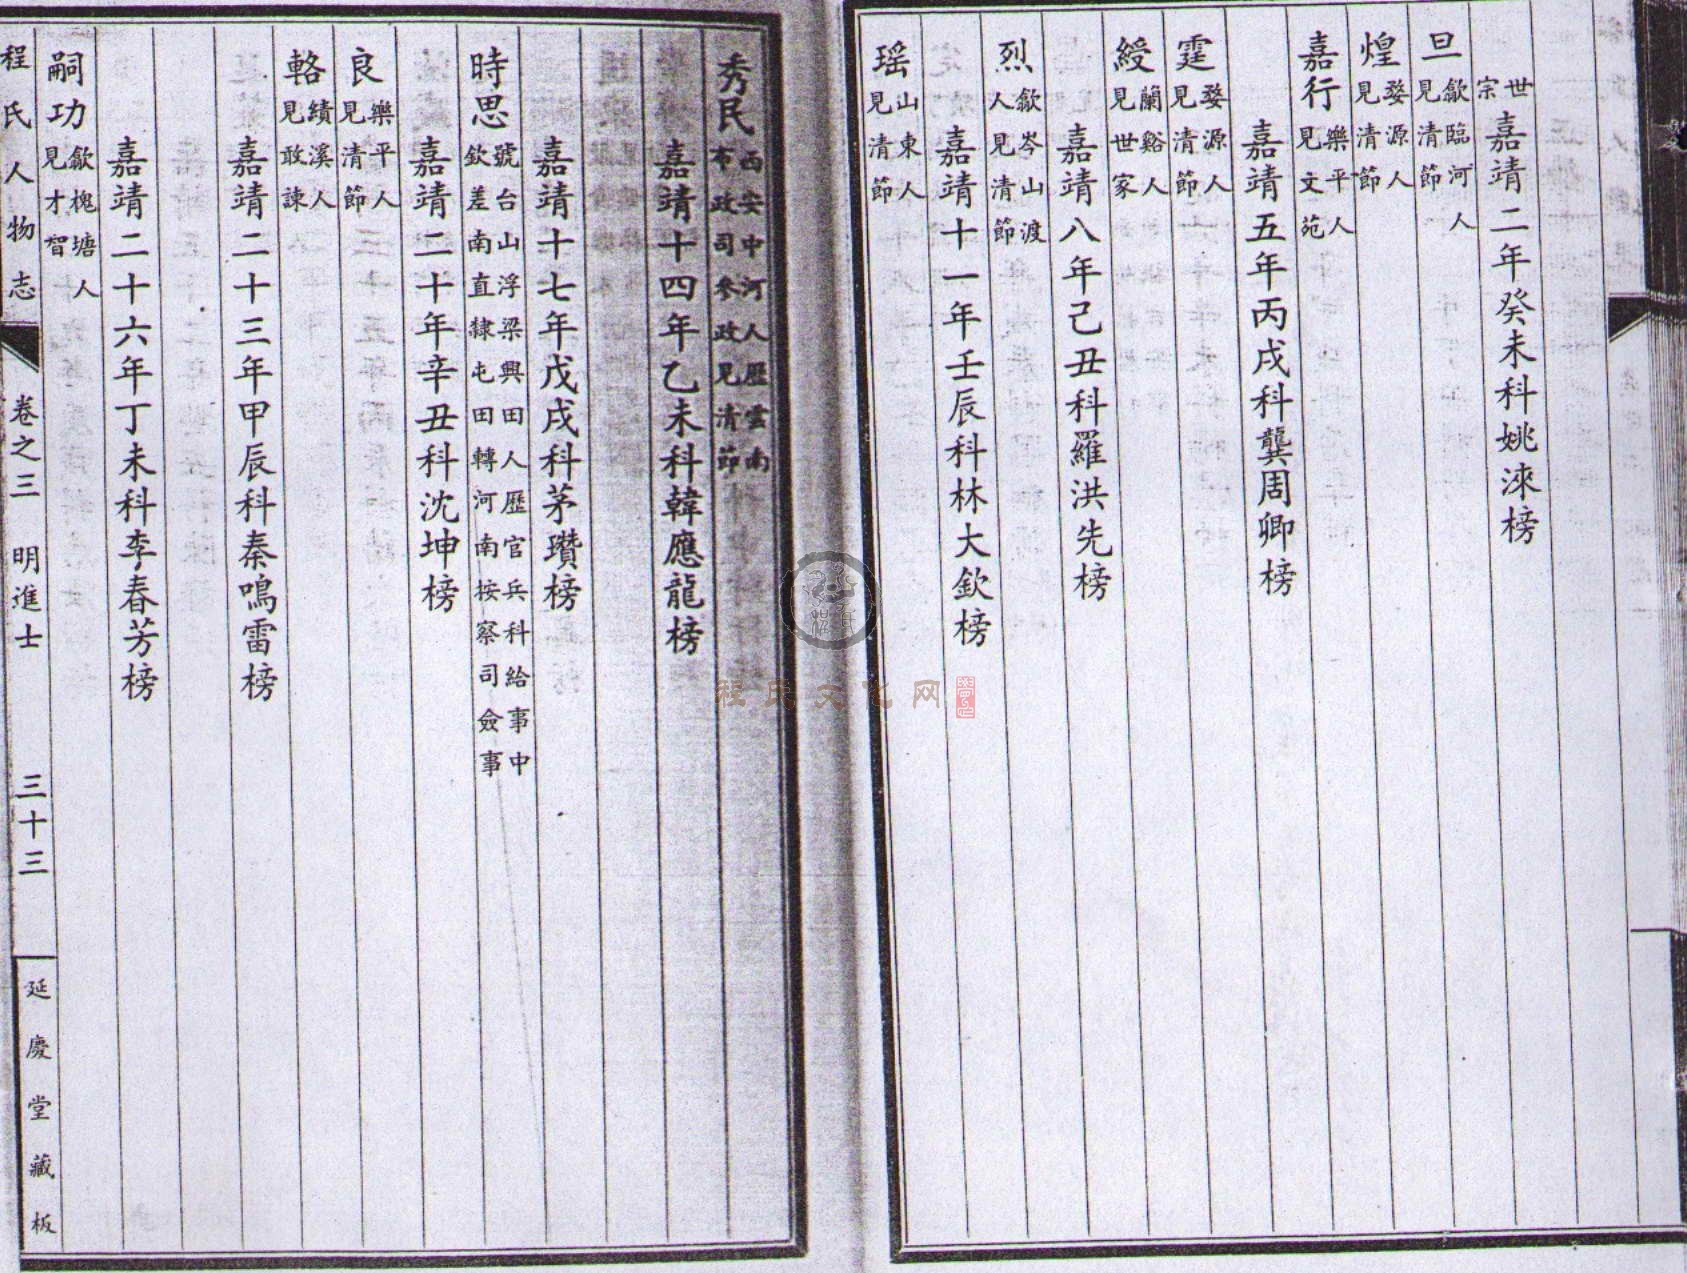 世宗
嘉靖二年癸未科姚淶榜
旦 歙臨河人見清節
煌 婺源人見清節
嘉行 樂平人見文苑
嘉靖五年丙戌科龔周卿榜
霆 婺源人見清節
綬 蘭谿人見世家
嘉靖八年己丑科羅洪先榜
烈 歙岑山渡人見清節
嘉靖十一年壬辰科林大欽榜
瑶 山東人見清節
秀民 西安中河人歷雲南布政司參政見清節
嘉靖十四年乙未科韓應龍榜
嘉靖十七年戊戌科茅瓚榜
時思 號台山浮梁興田人歷官兵科給事中欽差南直隸屯田轉河南按察司僉事
嘉靖二十年辛丑科沈坤榜
良 樂平人見清節
輅 績溪人見敢諫
嘉靖二十三年甲辰科秦鳴雷榜
嘉靖二十六年丁未科李春芳榜
嗣功 歙槐塘人見才智
程氏人物志 卷之三 明進士 三十三 延慶堂藏板
程氏文化网